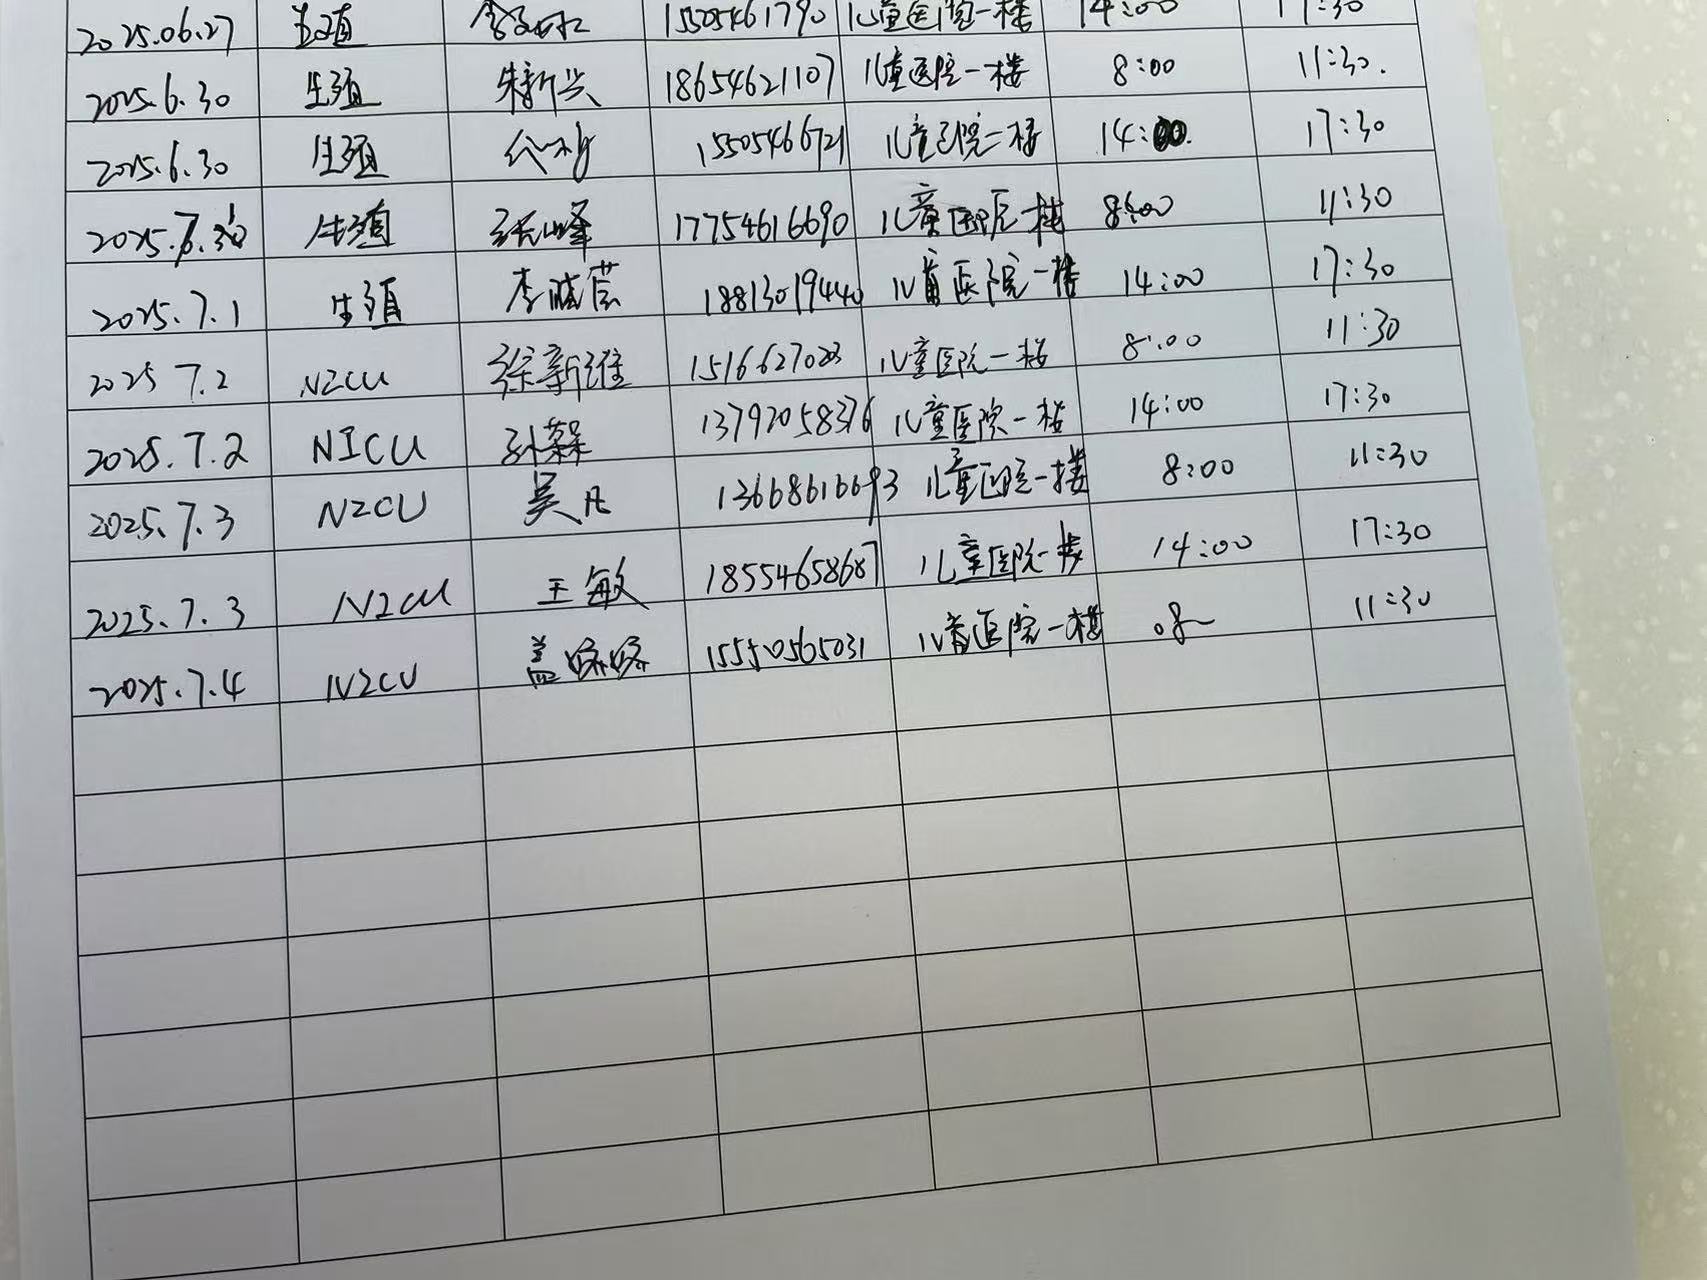 2025.06.27 生殖 15505461790 儿童医院一楼 14:00 17:30
2025.6.30 生殖 朱新兴 18654621107 儿童医院一楼 8:00 11:30.
2025.6.30 生殖 15505466721 儿童医院一楼 14:00. 17:30
生殖 张峰 17754616690 儿童医院一楼 8:00 11:30
2025.7.1 生殖 18813019440 儿童医院一楼 14:00 17:30
2025 7.2 NICU 徐新维 儿童医院一楼 8:00 11:30
2025.7.2 NICU 13792058376 儿童医院一楼 14:00 17:30
2025.7.3 NICU 吴凡 13668616693 儿童医院一楼 8:00 11:30
2025.7.3 NICU 王敏 18554658687 儿童医院一楼 14:00 17:30
2025.7.4 NICU 盖 15550565031 儿童医院一楼 11:30